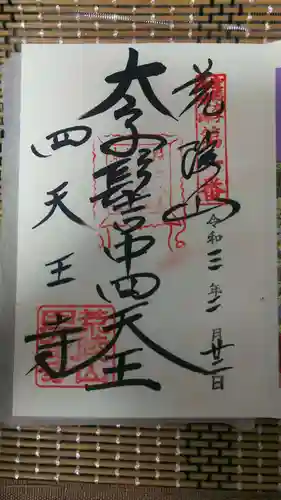 荒陵山
令和三年二月廿二日
太子髻中四天王
四天王寺